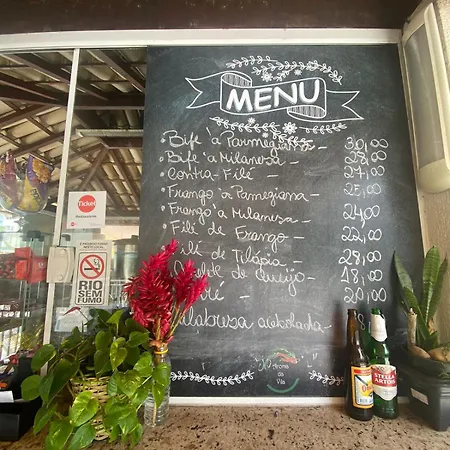 MENU
• Bife à Parmegiana - 30,00
• Bife à Milanesa - 28,00
• Contra-Filé - 27,00
• Frango à Pamegiana - 25,00
• Frango à Milanesa - 24,00
• Filé de Frango - 22,00
• Filé de Tilápia - 28,00
de queijo - 18,00
20,00
acebolada -
Aroma da Vila
Ticket
É PROIBIDO FUMAR NESTE LOCAL
RIO
SEM
FUMO
STELLA
ARTOIS